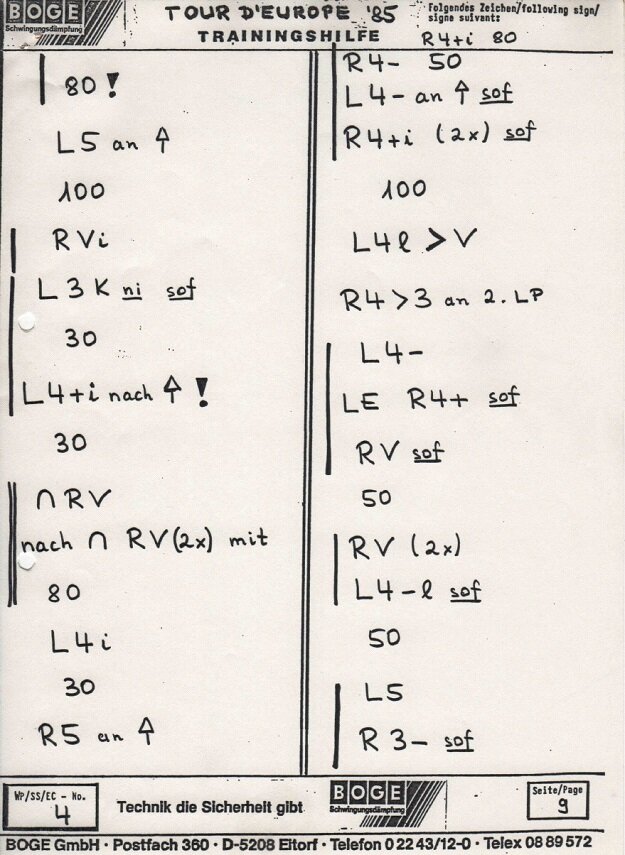 BOGE
Schwingungsdämpfung
TOUR D'EUROPE '85
TRAININGSHILFE
Folgendes Zeichen/following sign/
signe suivant:
R4+i 80
80 !
L5 an ↑
100
RVi
L3K ni sof
30
L4+i nach ↑ !
30
∩ RV
nach ∩ RV(2x) mit
80
L4i
30
R5 an ↑
R4- 50
L4- an ↑ sof
R4+i (2x) sof
100
L4l > V
R4>3 an 2. LP
L4-
LE R4+ sof
RV sof
50
RV (2x)
L4-l sof
50
L5
R3- sof
WP/SS/EC - No.
4
Technik die Sicherheit gibt
BOGE
Schwingungsdämpfung
Seite/Page
9
BOGE GmbH · Postfach 360 · D-5208 Eitorf · Telefon 0 22 43/12-0 · Telex 08 89 572